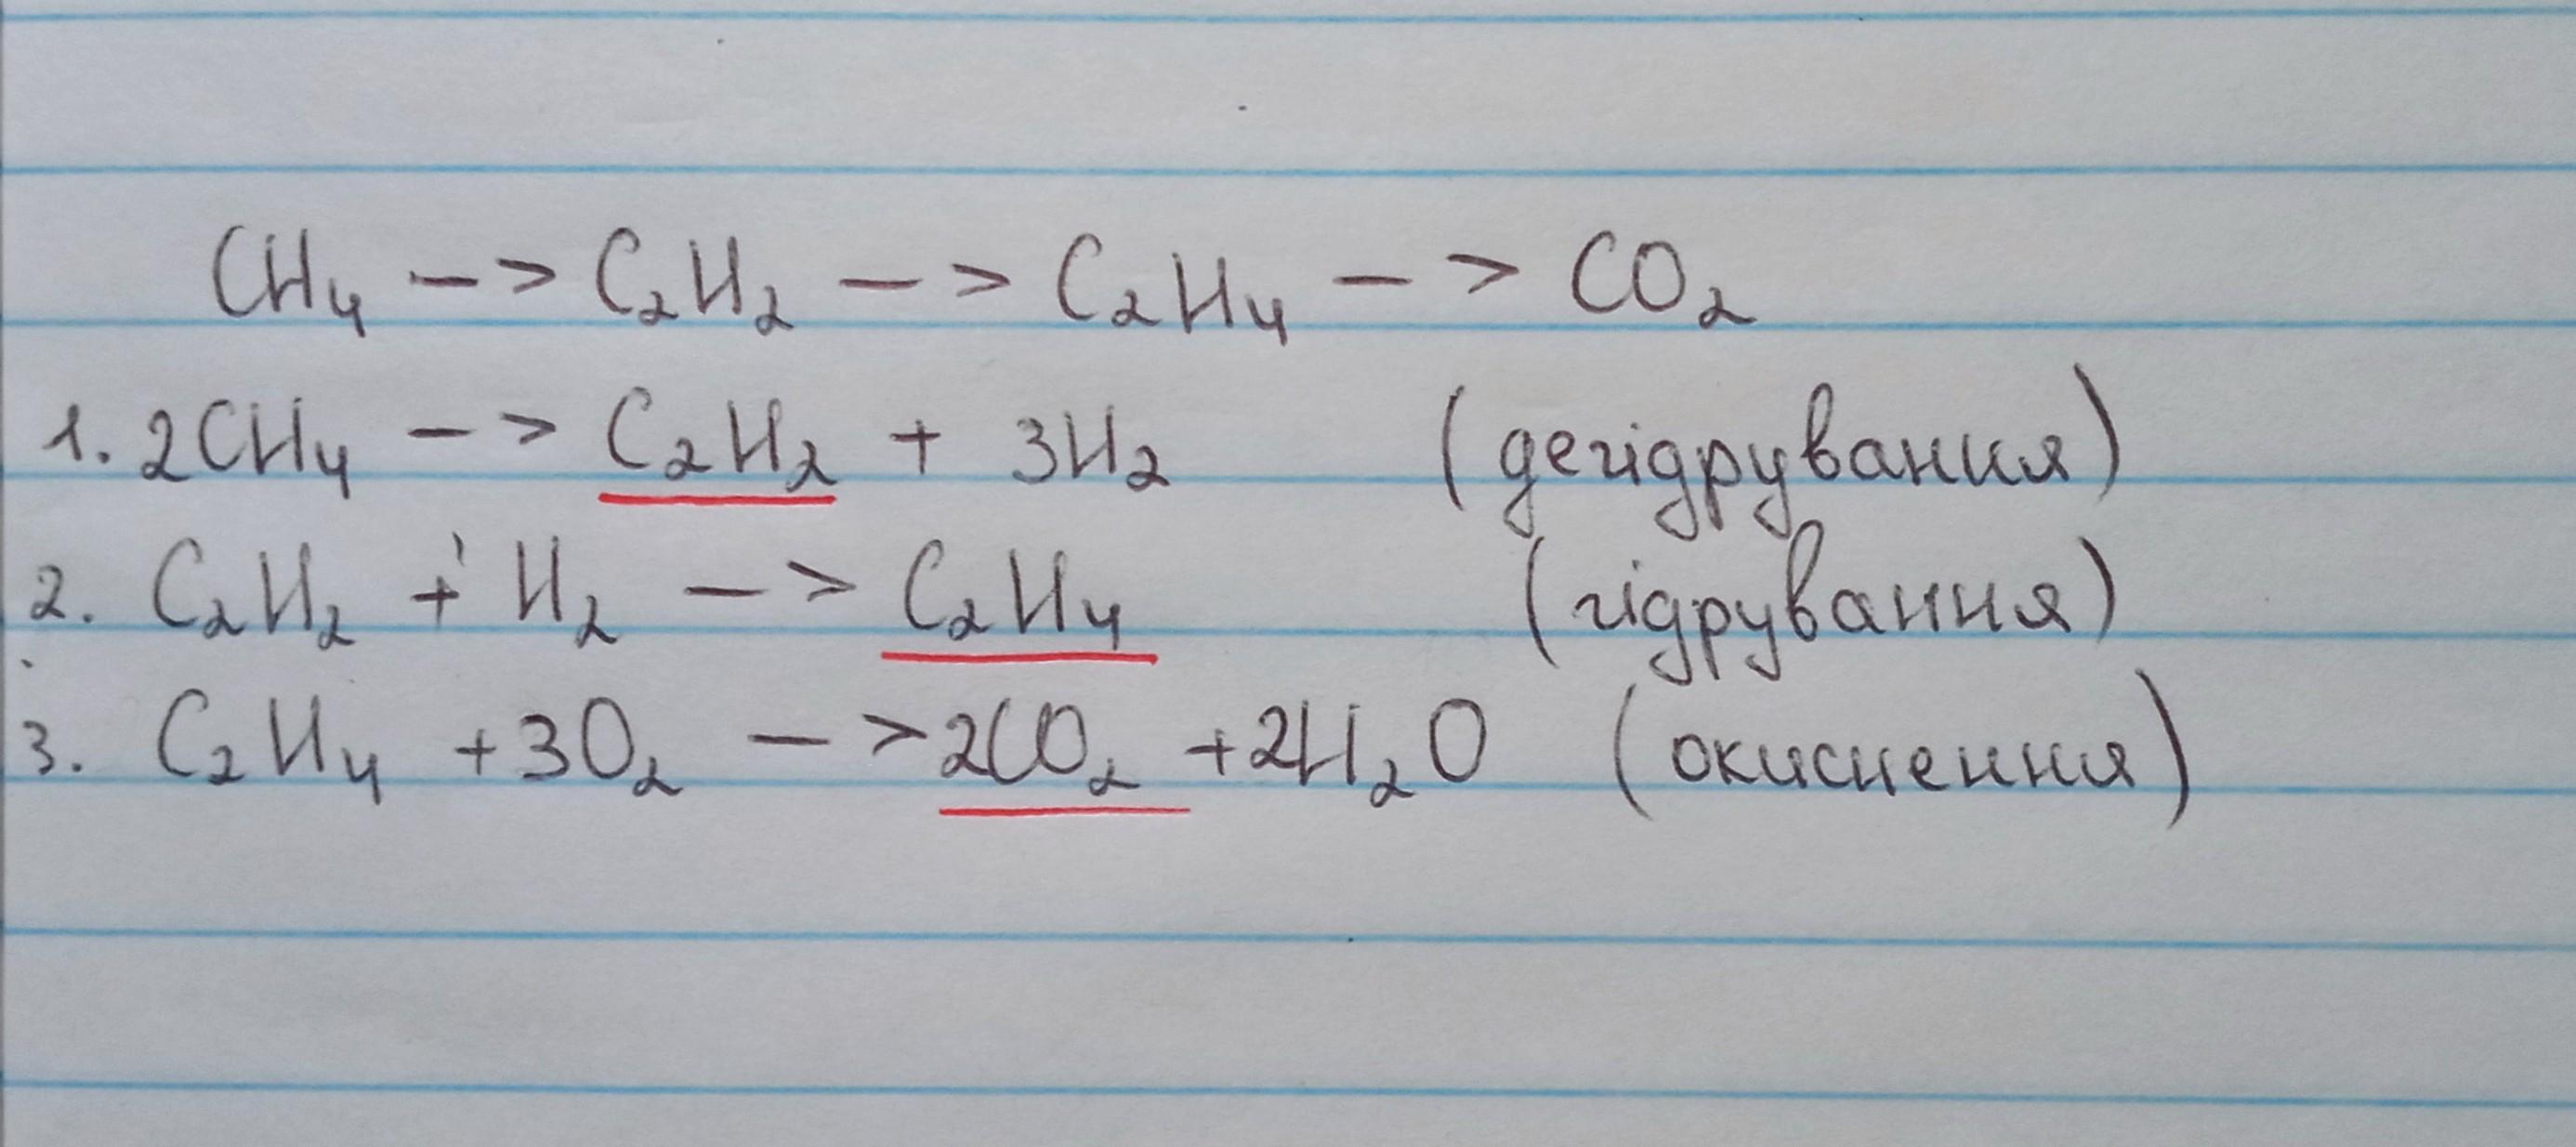 CH₄ -> C₂H₂ -> C₂H₄ -> CO₂
1. 2CH₄ -> C₂H₂ + 3H₂ (дегідрування)
2. C₂H₂ + H₂ -> C₂H₄ (гідрування)
3. C₂H₄ + 3O₂ -> 2CO₂ + 2H₂O (окиснення)